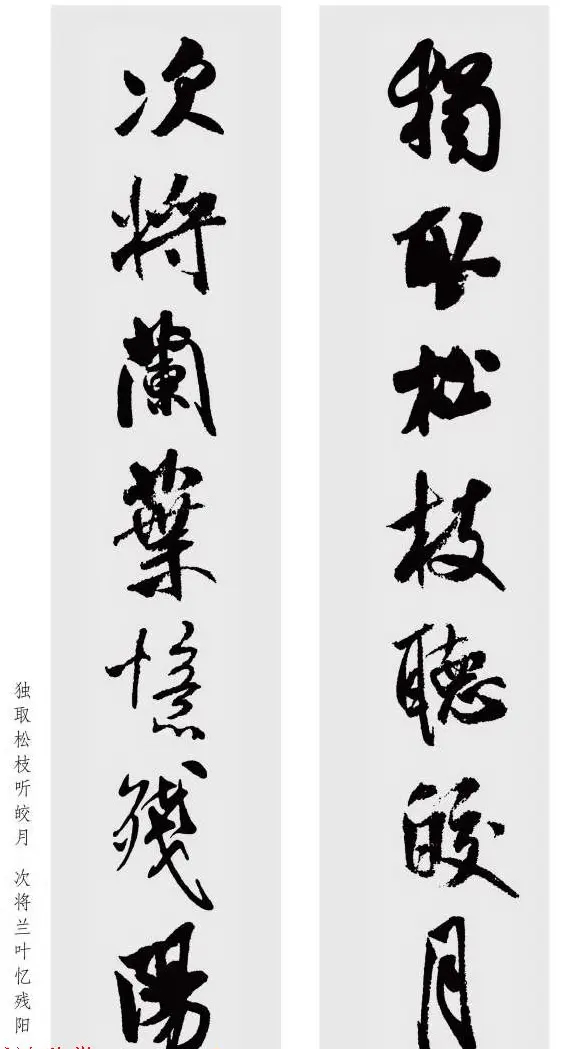 獨取松枝聽皎月
次將蘭葉憶殘陽
独取松枝听皎月 次将兰叶忆残阳